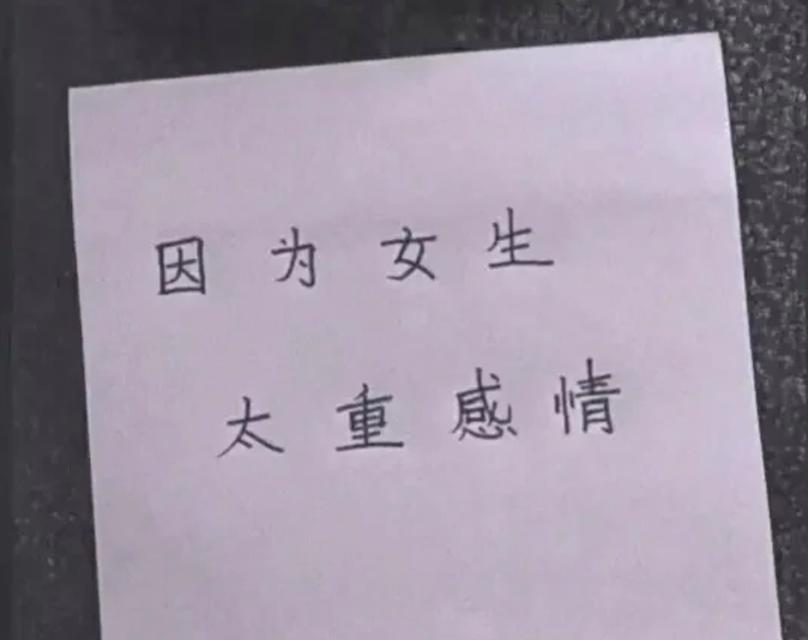 因为女生
太重感情